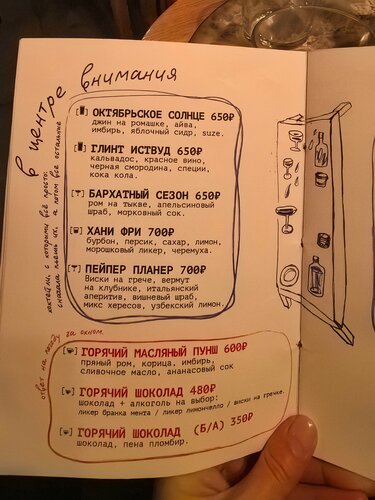 в центре внимания
коктейли, с которыми всё просто:
сначала пьёшь их, а потом все остальные
ОКТЯБРЬСКОЕ СОЛНЦЕ 650₽
джин на ромашке, айва,
имбирь, яблочный сидр, suze.
ГЛИНТ ИСТВУД 650₽
кальвадос, красное вино,
черная смородина, специи,
кока кола.
БАРХАТНЫЙ СЕЗОН 650₽
ром на тыкве, апельсиновый
шраб, морковный сок.
ХАНИ ФРИ 700₽
бурбон, персик, сахар, лимон,
морошковый ликер, черемуха.
ПЕЙПЕР ПЛАНЕР 700₽
Виски на грече, вермут
на клубнике, итальянский
аперитив, вишневый шраб,
микс хересов, узбекский лимон.
ответ на погоду за окном.
ГОРЯЧИЙ МАСЛЯНЫЙ ПУНШ 600₽
пряный ром, корица, имбирь,
сливочное масло, ананасовый сок
ГОРЯЧИЙ ШОКОЛАД 480₽
шоколад + алкоголь на выбор:
ликер бранка мента / ликер лимончелло / виски на гречке.
ГОРЯЧИЙ ШОКОЛАД (Б/А) 350₽
шоколад, пена пломбир.